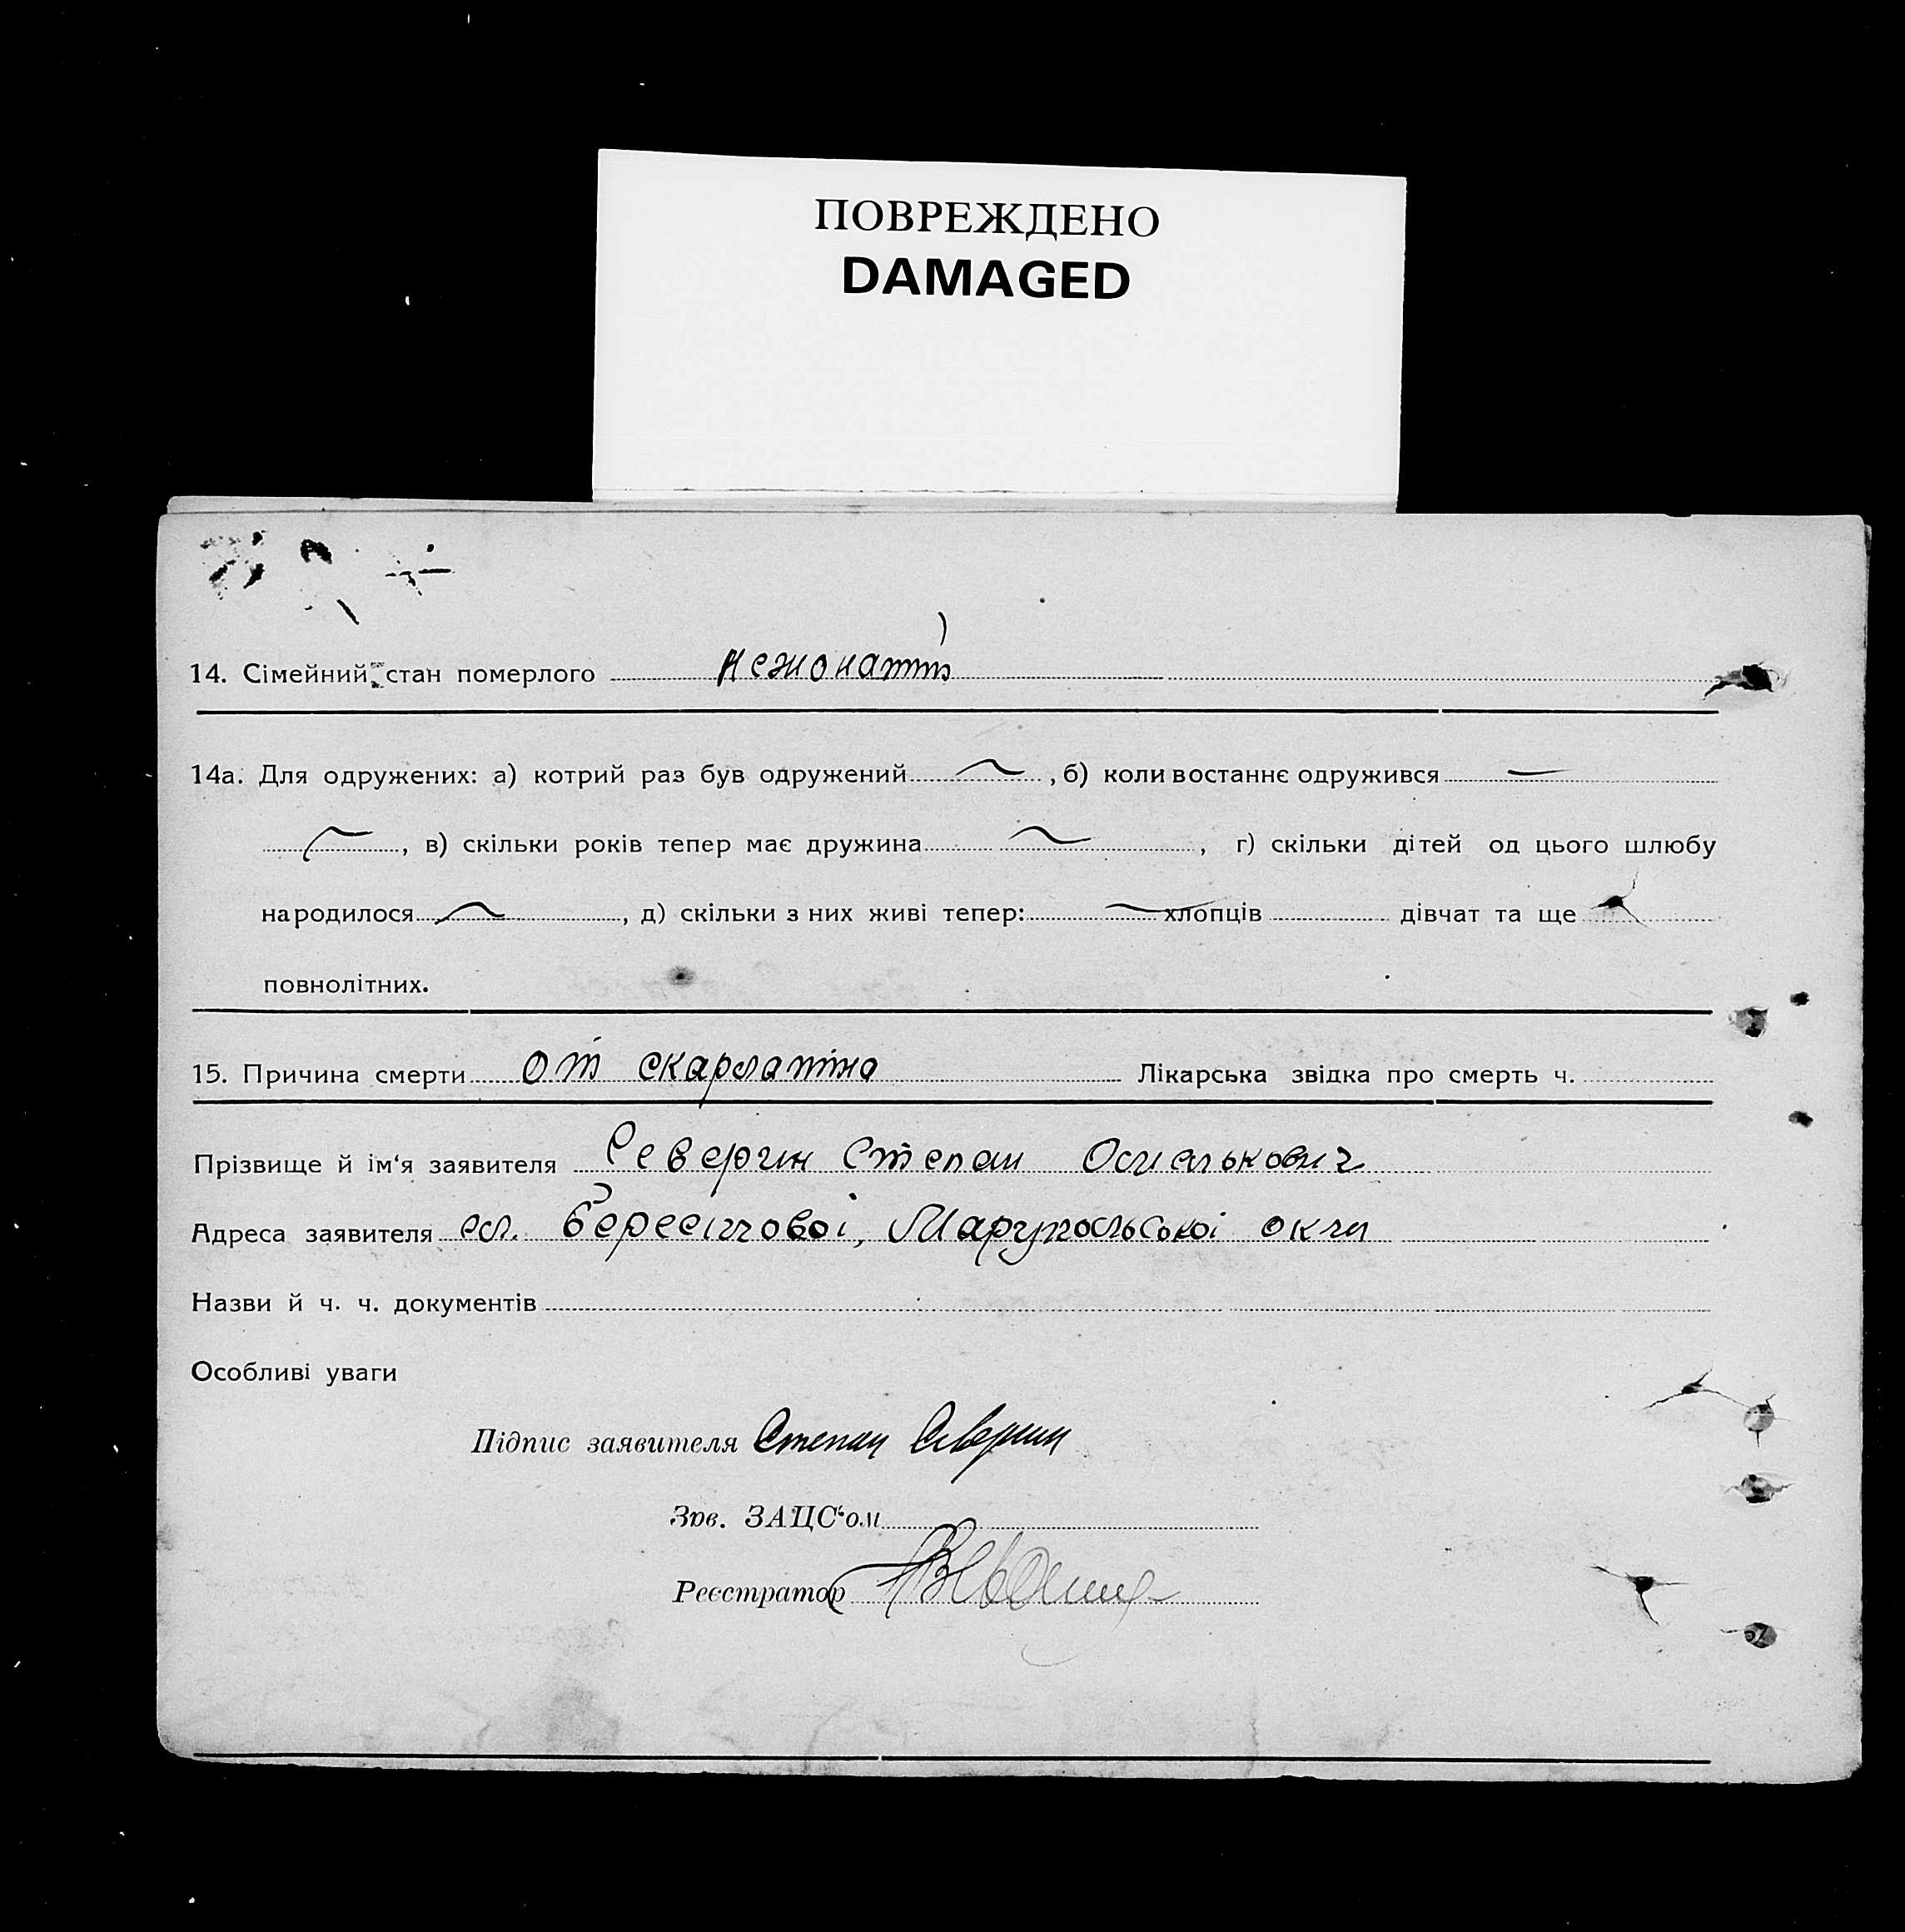 ПОВРЕЖДЕНО
DAMAGED
14. Сімейний стан померлого нежонатт
14а. Для одружених: а) котрий раз був одружений , б) коли востаннє одружився
, в) скільки років тепер має дружина , г) скільки дітей од цього шлюбу
народилося , д) скільки з них живі тепер: хлопців дівчат та ще
повнолітних.
15. Причина смерти от скарлатіна Лікарська звідка про смерть ч.
Прізвище й ім‘я заявителя Северин Степан
Адреса заявителя сл. Марупольської окги
Назви й ч. ч. документів
Особливі уваги
Підпис заявителя Степан Северин
Зав. ЗАЦС‘ом
Реєстратор